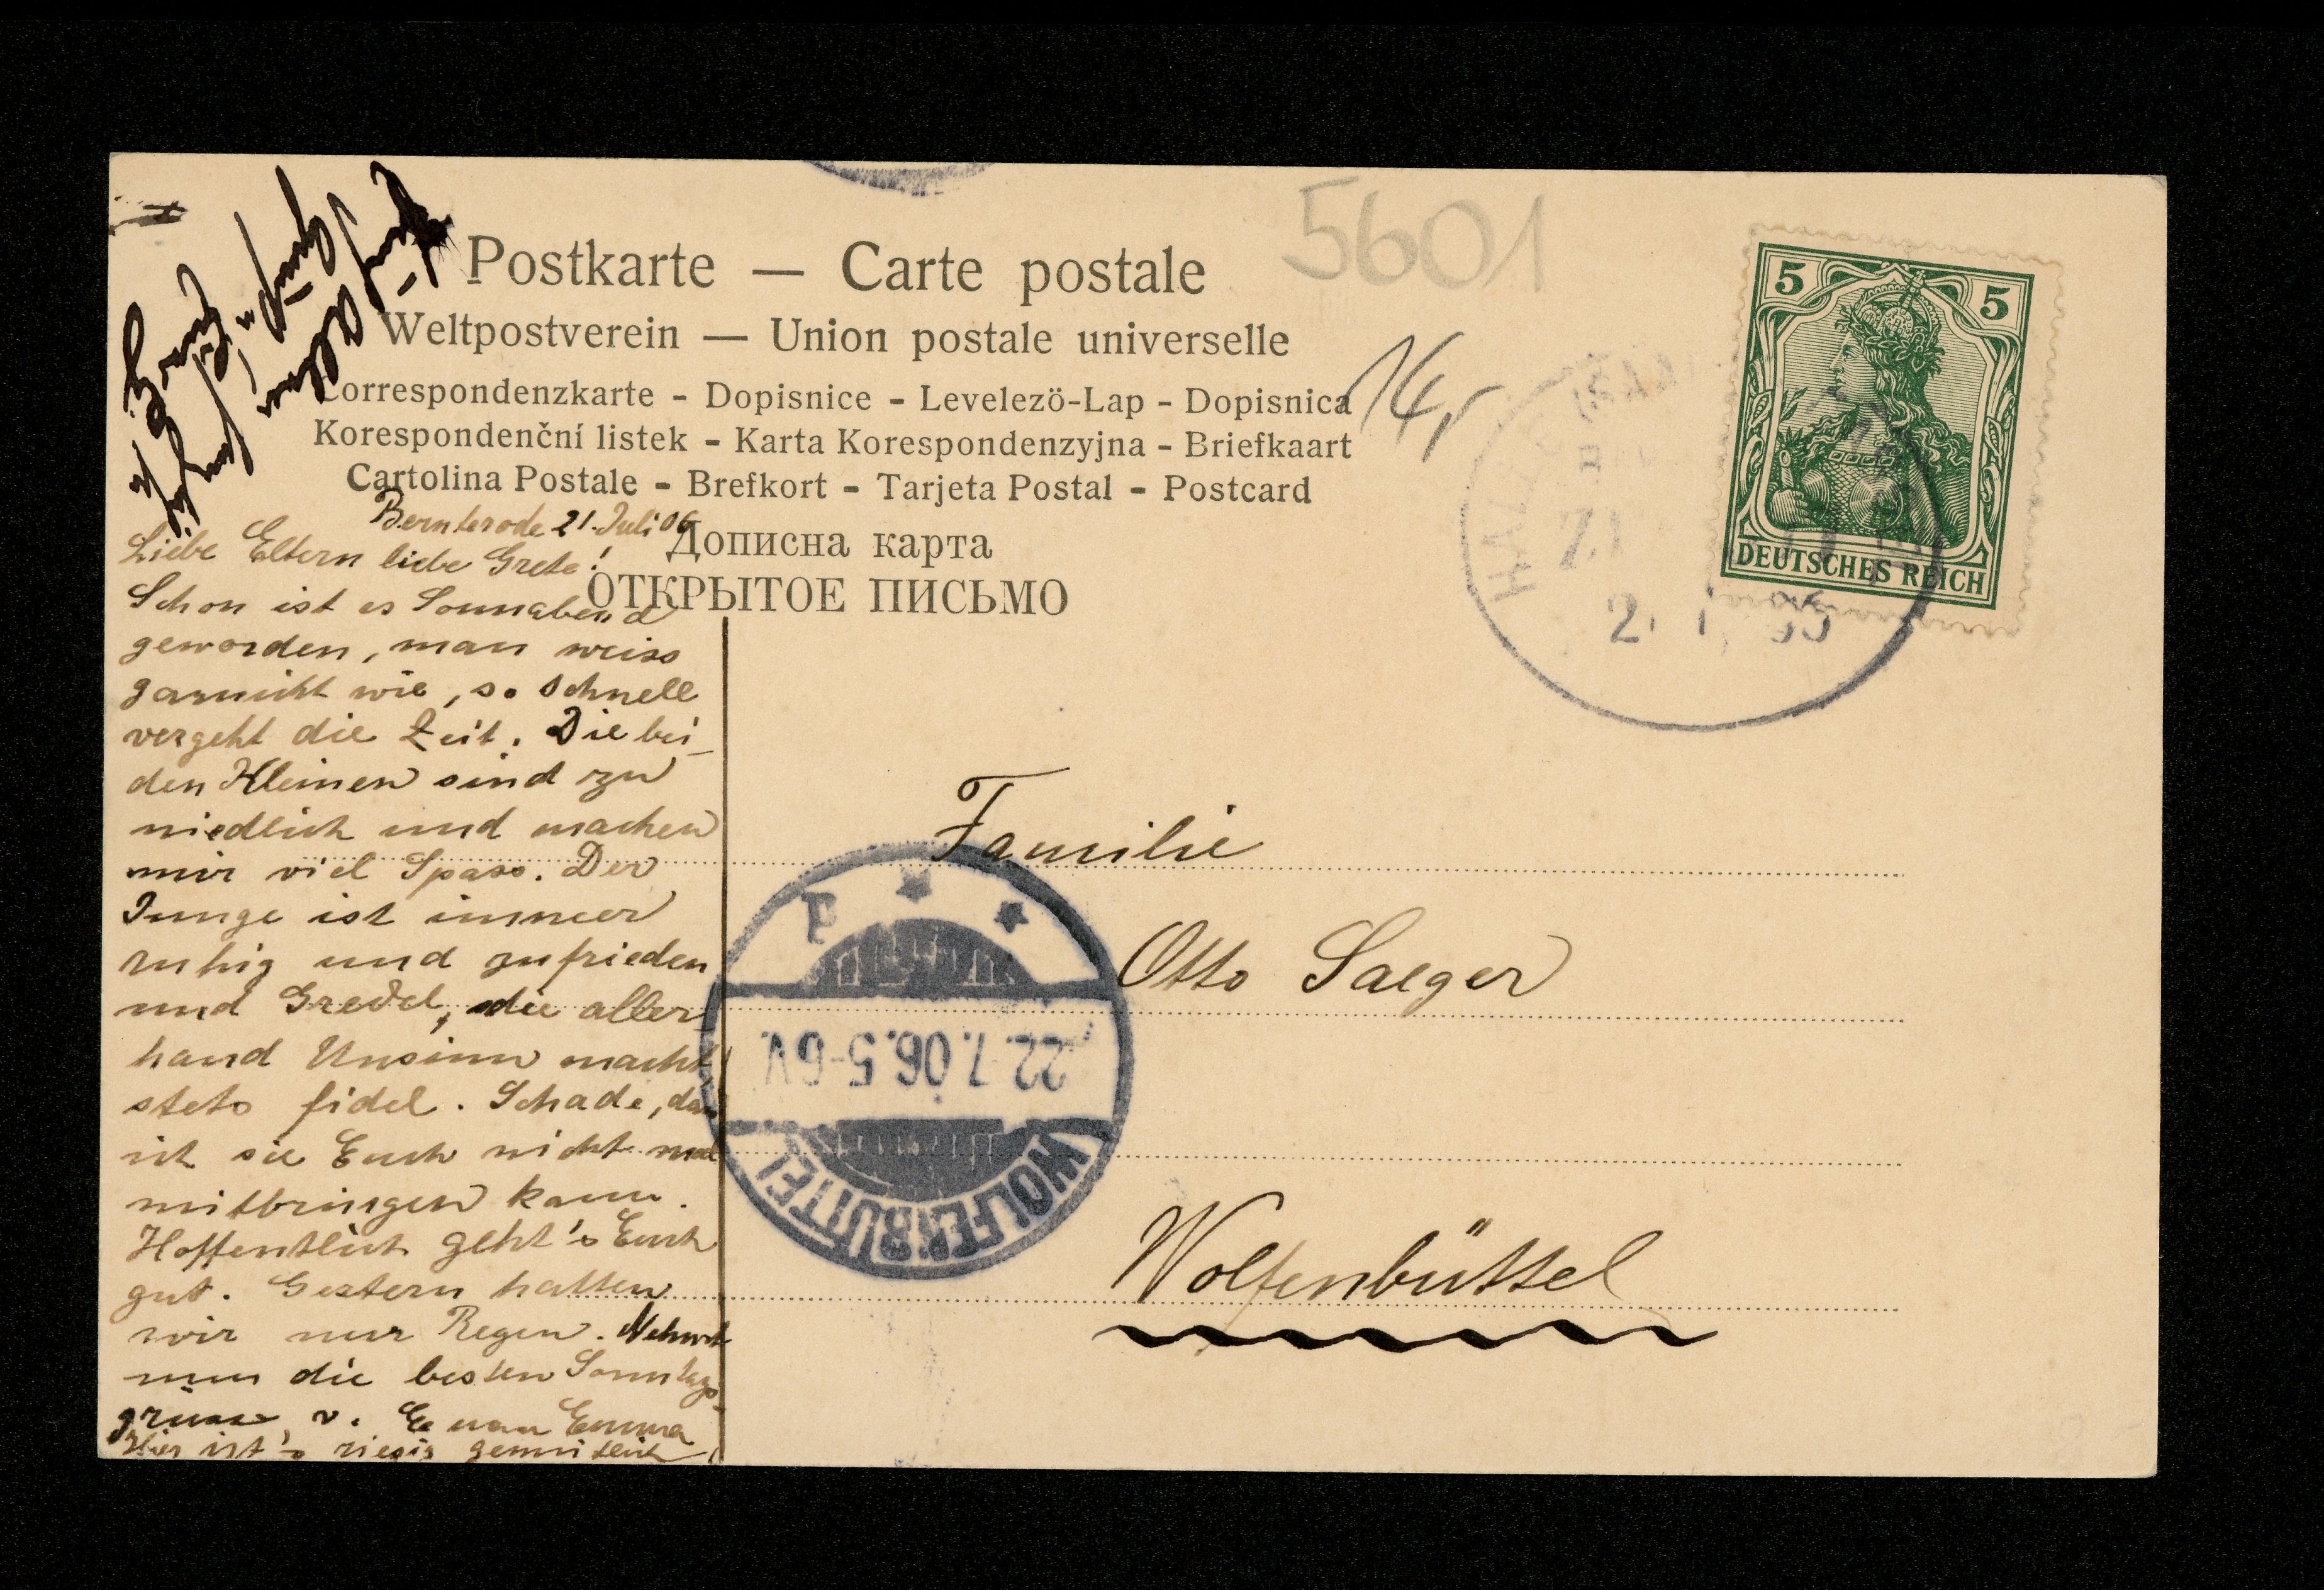 5601
Postkarte — Carte postale
Weltpostverein — Union postale universelle
Correspondenzkarte - Dopisnice - Levelezö-Lap - Dopisnica
Korespondenční listek - Karta Korespondenzyjna - Briefkaart
Cartolina Postale - Brefkort - Tarjeta Postal - Postcard
Дописна карта
ОТКРЫТОЕ ПИСЬМО
14,
5 5
DEUTSCHES REICH
Bernterode 21. Juli 06
Liebe Eltern liebe Grete!
Schon ist es Sonnabend
geworden, man weiss
garnicht wie, so schnell
vergeht die Zeit. Die bei-
den Kleinen sind zu
niedlich und machen
mir viel Spass. Der
Junge ist immer
ruhig und zufrieden
und Gredel, die aller
hand Unsinn macht
stets fidel. Schade, dass
ich sie Euch nicht mal
mitbringen kann.
Hoffentlich geht's Euch
gut. Gestern hatten
wir nur Regen. Nehmt
nun die besten Sonntags-
grüsse v. Emma
Hier ist's riesig gemütlich
Familie
Otto Saeger
Wolfenbüttel
WOLFENBÜTTEL
22.7.06.5-6V.